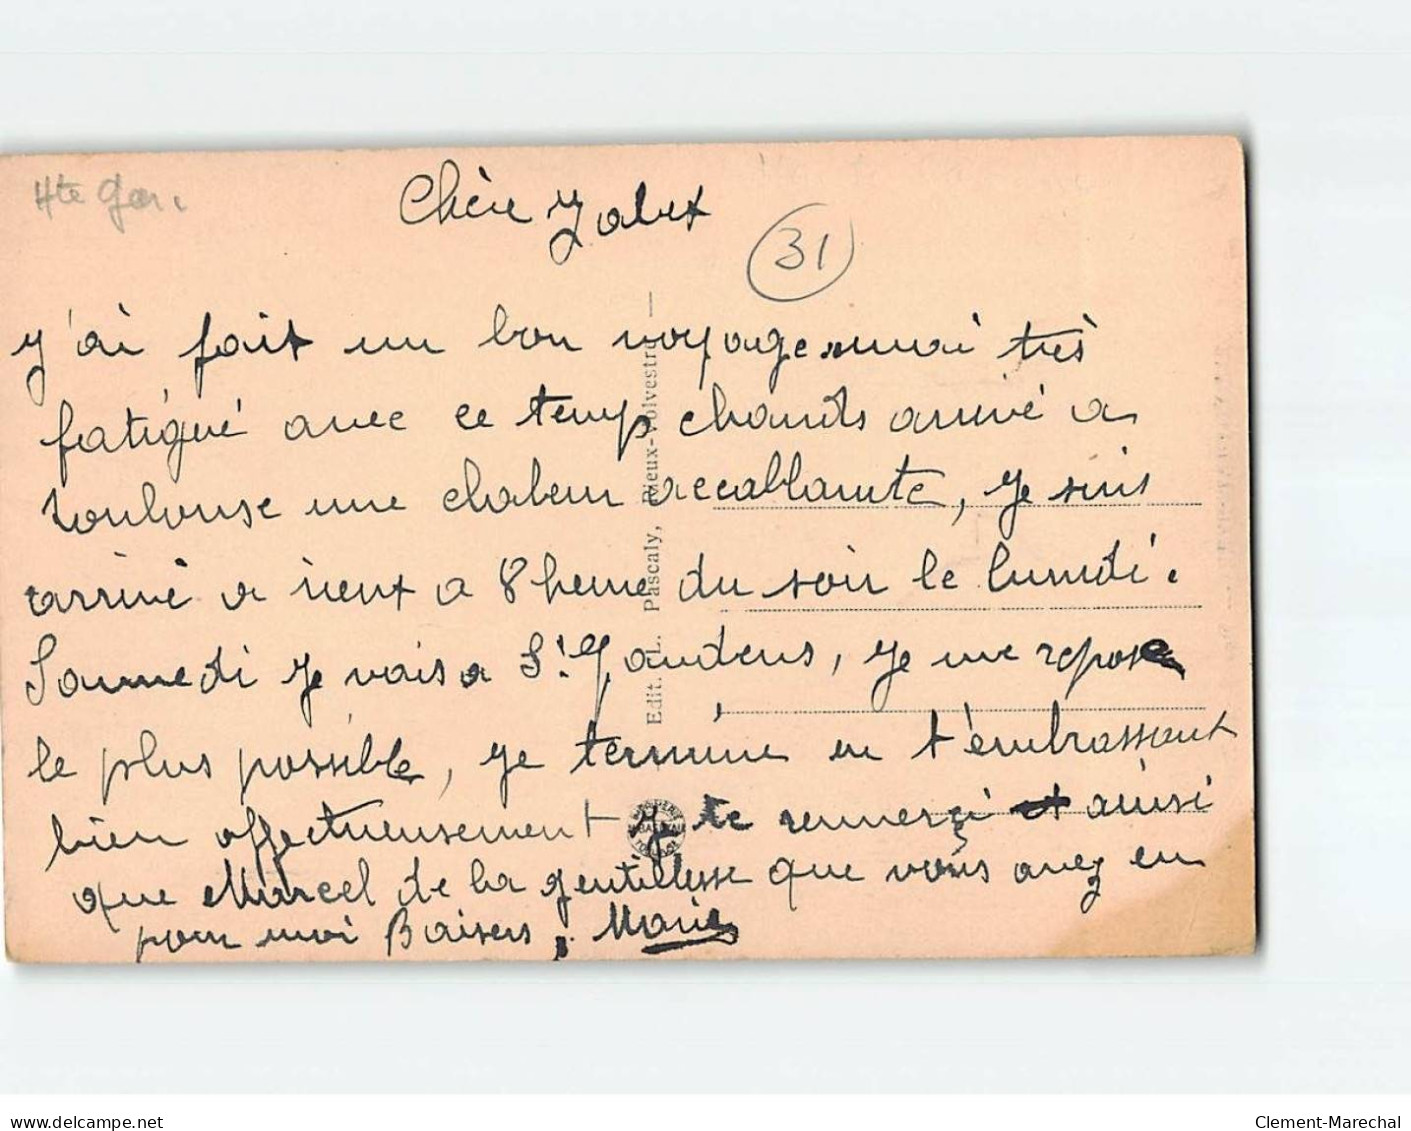 Hte Gar.
Chère Yolet
31
y'ai fait un bon voyage mai très
fatigué avec ce temp chauds arrivé a
toulouse une chaleur accablante, je suis
arrivé a rieux a 8 heure du soir le lundi.
Samedi je vais a St. Gaudens, je me repose
le plus possible, je termine en t'embrassant
bien affectueusement je te remerçi et ainsi
que Marcel de la gentillesse que vous avez eu
pour moi Baisers, Marie
Edit. L. Pascaly, Rieux-Volvestre
delcampe.net
Clement-Marechal